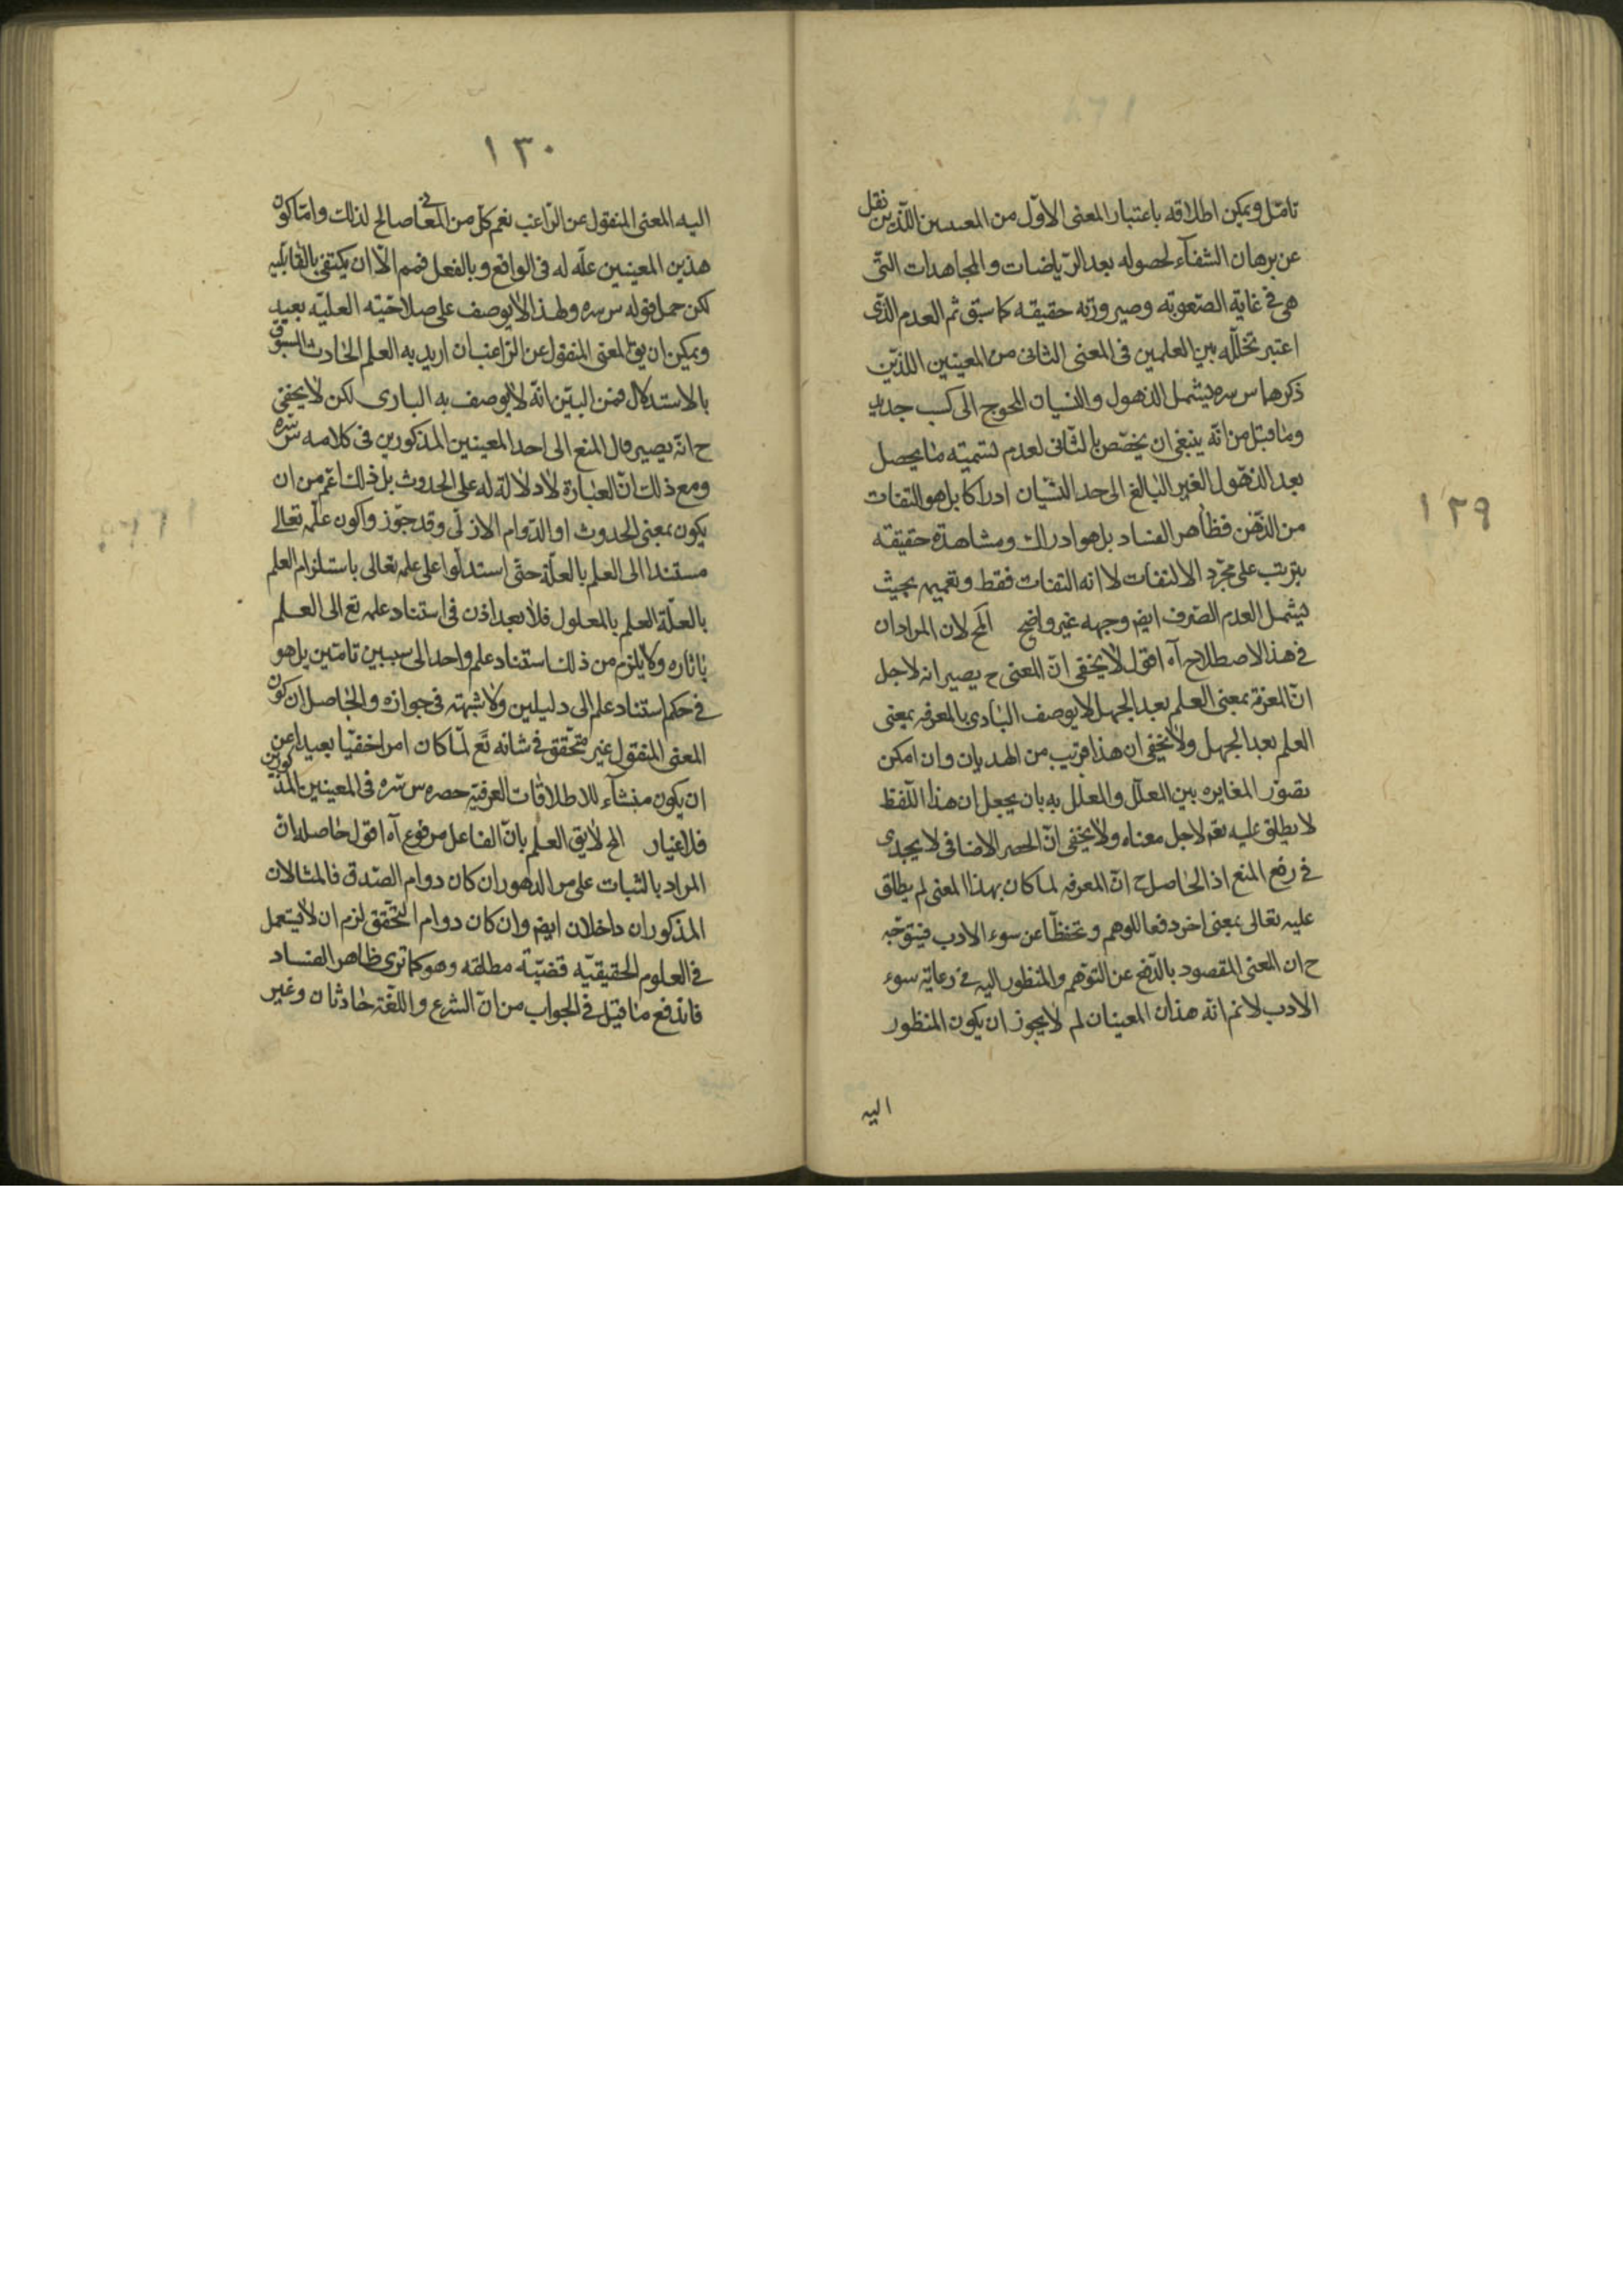 ١٢٩
تامّل ويمكن اطلاقه باعتبار المعنى الاوّل من المعنيين اللّذين نقل
عن برهان الشفآء لحصوله بعد الرّياضات والمجاهدات التى
هى فى غاية الصّعوبة وصيرورته حقيقه كما سبق ثم العدم الذّى
اعتبر تخلّله بين العلمين فى المعنى الثانى من المعنيين اللذين
ذكرهما س سره يشمل الذهول والنسيان المحوج الى كسب جديد
وما قيل من انّه ينبغى ان يخصّص بالثّانى لعدم تسميته ما يحصل
بعد الذهّول الغير البالغ الى حد النّسيان ادراكا بل هو التفات
من الذّهن فظاهر الفساد بل هو ادراك ومشاهدة حقيقه
يترتب على مجرّد الالتفات لا انه التفات فقط وتعميمه بحيث
يشمل العدم الصّرف ايض وجهه غير واضح الخ لان المراد ان
فى هذا الاصطلاح آه اقول لا يخفى انّ المعنى ح يصير انه لاجل
انّ المعرفة بمعنى العلم بعد الجهل لا يوصف البارى بالمعرفه بمعنى
العلم بعد الجهل ولا يخفى ان هذا قريب من الهذيان وان امكن
تصوّر المغايره بين المعلّل والمعلّل به بان يجعل ان هذا اللّفظ
لا يطلق عليه تعم لاجل معناه ولا يخفى انّ الحصر الاضافى لا يجدى
فى رفع المنع اذ الحاصل ح انّ المعرفه لما كان بهذا المعنى لم يطلق
عليه تعالى بمعنى اخر دفعا للوهم وتحفظّا عن سوء الادب فيتوجّه
ح ان المعنى المقصود بالدّفع عن التوّهم والمنظور اليه فى رعاية سوء
الادب لانم انّه هذان المعنيان لم لا يجوز ان يكون المنظور
اليه
١٣٠
اليه المعنى المنقول عن الرّاغب نعم كلّ من المعانى صالح لذلك وامّا كون
هذين المعنيين علّه له فى الواقع وبالفعل فمم الّا ان يكتفى بالقابليه
لكن حمل قوله س سره ولهذا لا يوصف على صلاحيّته العليّه بعيد
ويمكن ان يق المعنى المنقول عن الرّاغب ان اريد به العلم الحادث المسبوق
بالاستدلال فمن البيّن انّه لا يوصف به البارى لكن لا يخفى
ح انّه يصير مال المنع الى احد المعنيين المذكورين فى كلامه س سره
ومع ذلك انّ العبارة لا دلالة له على الحدوث بل ذلك اعّم من ان
يكون بمعنى الحدوث او الدّوام الازلى وقد جوّزوا كون علمه تعالى
مستندا الى العلم بالعلّة حتّى استدلّوا على علمه تعالى باستلزام العلم
بالعلّة العلم بالمعلول فلا بعد اذن فى استناد علمه تع الى العلم
باثاره ولا يلزم من ذلك استناد علم واحد الى سببين تامّين بل هو
فى حكم استناد علم الى دليلين ولا شبهته فى جوازه والحاصل ان كون
المعنى المنقول غير متحّقق فى شانه تع لمّا كان امرا خفيّا بعيدا عن
ان يكون منشآء للاطلاقات العرفيّه حصره س سره فى المعنيين المذكورين
فلا غبار الخ لا يق العلم بانّ الفاعل مرفوع آه اقول حاصله ان
المراد بالثبات على مر الدهور ان كان دوام الصّدق فالمثالان
المذكوران داخلان ايض وان كان دوام التّحقق لزم ان لا يستعمل
فى العلوم الحقيقيّه قضيّة مطلقه وهو كما ترى ظاهر الفساد
فاندفع ما قيل فى الجواب من انّ الشرع واللّغة حادثان وغير